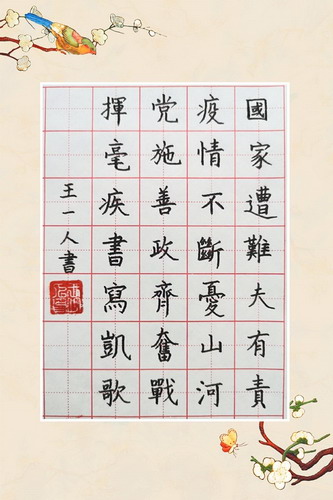 國家遭難夫有責
疫情不斷憂山河
党施善政齊奮戰
揮毫疾書寫凱歌
王一人書